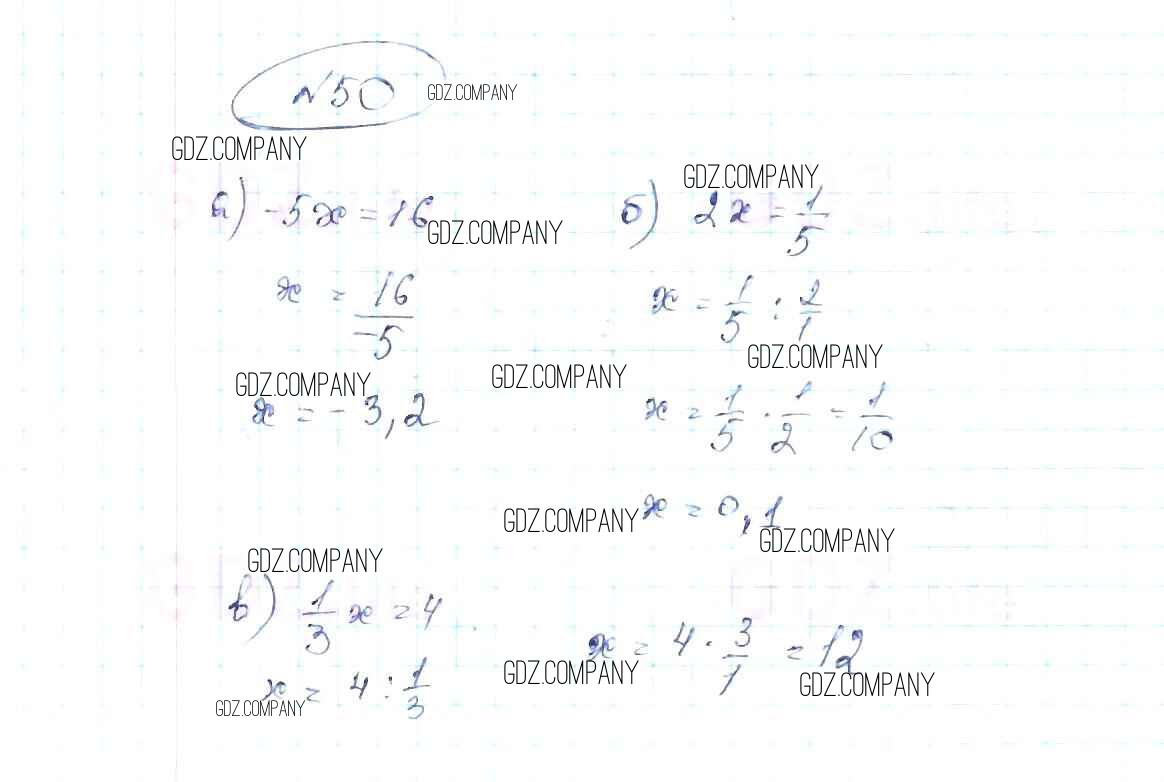 №50 GDZ.COMPANY
GDZ.COMPANY
GDZ.COMPANY
а) -5x = 16
GDZ.COMPANY
x = 16/-5
GDZ.COMPANY
x = -3,2
GDZ.COMPANY
б) 2x = 1/5
x = 1/5 : 2/1
GDZ.COMPANY
x = 1/5 · 1/2 = 1/10
GDZ.COMPANY x = 0,1
GDZ.COMPANY
GDZ.COMPANY
в) 1/3 x = 4
x = 4 : 1/3
GDZ.COMPANY
x = 4 · 3/1 = 12
GDZ.COMPANY
GDZ.COMPANY